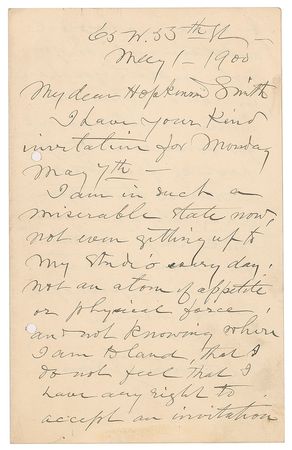 65 W. 55th St
May 1 - 1900
My dear Hopkinson Smith
I have your kind
invitation for Monday
May 7th -
I am in such a
miserable state now,
not even getting up to
my studio every day;
not an atom of appetite
or physical force,
and not knowing where
I am to land, that I
do not feel that I
have any right to
accept an invitation